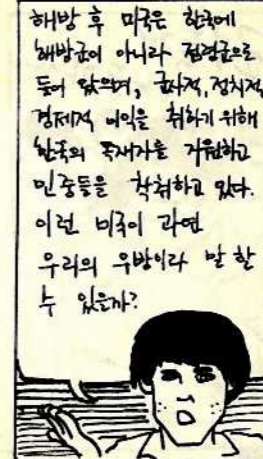 해방 후 미국은 한국에
해방군이 아니라 점령군으로
들어 왔으며, 군사적, 정치적,
경제적 이익을 취하기 위해
한국의 독재자를 지원하고
민중들을 착취하고 있다.
이런 미국이 과연
우리의 우방이라 말 할
수 있을까?